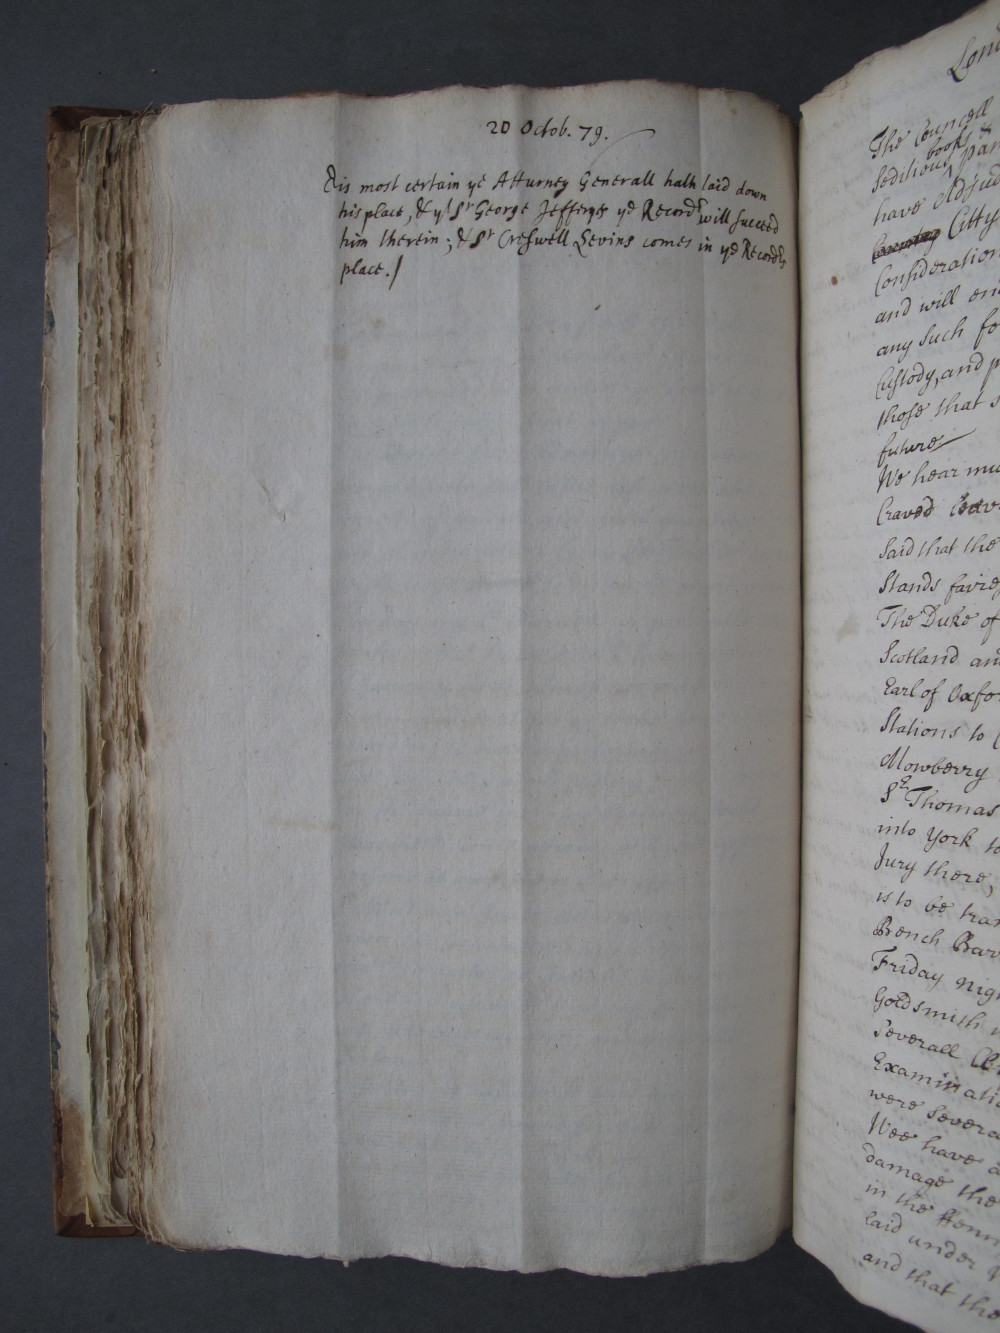 20 Octob. 79.
Tis most certain ye Atturney Generall hath laid down
his place, & yt Sr George Jefferys ye Recordr will succeed
him therein; & Sr Creswell Levins comes in ye Recordrs
place./
Lond
The Councell
book
Seditious pam
have Adjud
Citty
Consideration
and will en
any Such fo
Custody, and p
those that s
future
We hear mu
Craved Leav
Said that the
Stands faires
The Duke of
Scotland an
Earl of Oxfo
Stations to
Mowberry
Sr Thomas
into York to
Jury there,
is to be tran
Bench Barr
Friday nigh
Goldsmith
Severall
Examinatio
were Severa
Wee have a
damage the
in the
laid under
and that the